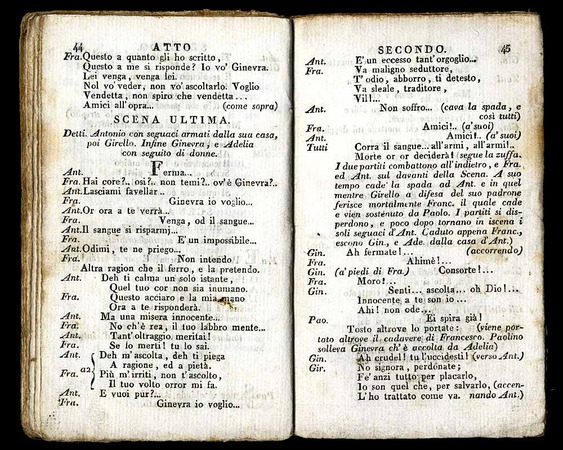 44 ATTO
Fra. Questo a quanto gli ho scritto,
Questo a me si risponde? Io vo' Ginevra.
Lei venga, venga lei.
Nol vo' veder, non vo' ascoltarlo. Voglio
Vendetta, non spira che vendetta...
Amici all'opra... (come sopra)
SCENA ULTIMA.
Detti. Antonio con seguaci armati dalla sua casa,
poi Girello. Infine Ginevra, e Adelia
con seguito di donne.
Ant. Ferma...
Fra. Hai core?.. osi?.. non temi?.. ov'è Ginevra?..
Ant. Lasciami favellar..
Fra. Ginevra io voglio...
Ant. Or ora a te verrà...
Fra. Venga, od il sangue...
Ant. Il sangue si risparmj...
Fra. E' un impossibile...
Ant. Odimi, te ne priego...
Fra. Non intendo
Altra ragion che il ferro, e la pretendo.
Ant. Deh ti calma un solo istante,
Quel tuo cor non sia inumano.
Fra. Questo acciaro e la mia mano
Ora a te risponderà.
Ant. Ma una misera innocente...
Fra. No ch'è rea, il tuo labbro mente...
Ant. Tant'oltraggio meritai!
Fra. Se lo merti! tu lo sai.
Ant. Deh m'ascolta, deh ti piega
A ragione, ed a pietà.
Fra. a2 Più m'irriti, non t'ascolto,
Il tuo volto orror mi fa.
Ant. E vuoi pur?...
Fra. Ginevra io voglio...
SECONDO. 45
Ant. E' un eccesso tant'orgoglio...
Fra. Va maligno seduttore,
T'odio, abborro, ti detesto,
Va sleale, traditore,
Vil!...
Ant. Non soffro... (cava la spada, e
così tutti)
Fra. Amici!.. (a'suoi)
Ant. Amici!.. (a'suoi)
Tutti Corra il sangue... all'armi, all'armi!..
Morte or deciderà! (segue la zuffa.
I due partiti combattono all'indietro, e Fra.
ed Ant. sul davanti della Scena. A suo
tempo cade la spada ad Ant. e in quel
mentre Girello a difesa del suo padrone
ferisce mortalmente Franc. il quale cade
e vien sostenuto da Paolo. I partiti si dis-
perdono, e poco dopo tornano in iscena i
soli seguaci d'Ant. Caduto appena Franc.,
escono Gin., e Ade. dalla casa d'Ant.)
Gin. Ah fermate!... (accorrendo)
Fra. Ahimè!...
Gin. (a'piedi di Fra.) Consorte!...
Fra. Moro!...
Gin. Senti... ascolta... oh Dio!...
Innocente a te son io...
Ahi! non ode...
Pao. Ei spira già!
Tosto altrove lo portate: (viene por-
tato altrove il cadavere di Francesco. Paolino
solleva Ginevra ch'è accolta da Adelia)
Gin. Ah crudel! tu l'uccidesti! (verso Ant.)
Gir. No signora, perdonate;
Fe' anzi tutto per placarlo,
Io son quel che, per salvarlo, (accen-
L'ho trattato come va. nando Ant.)